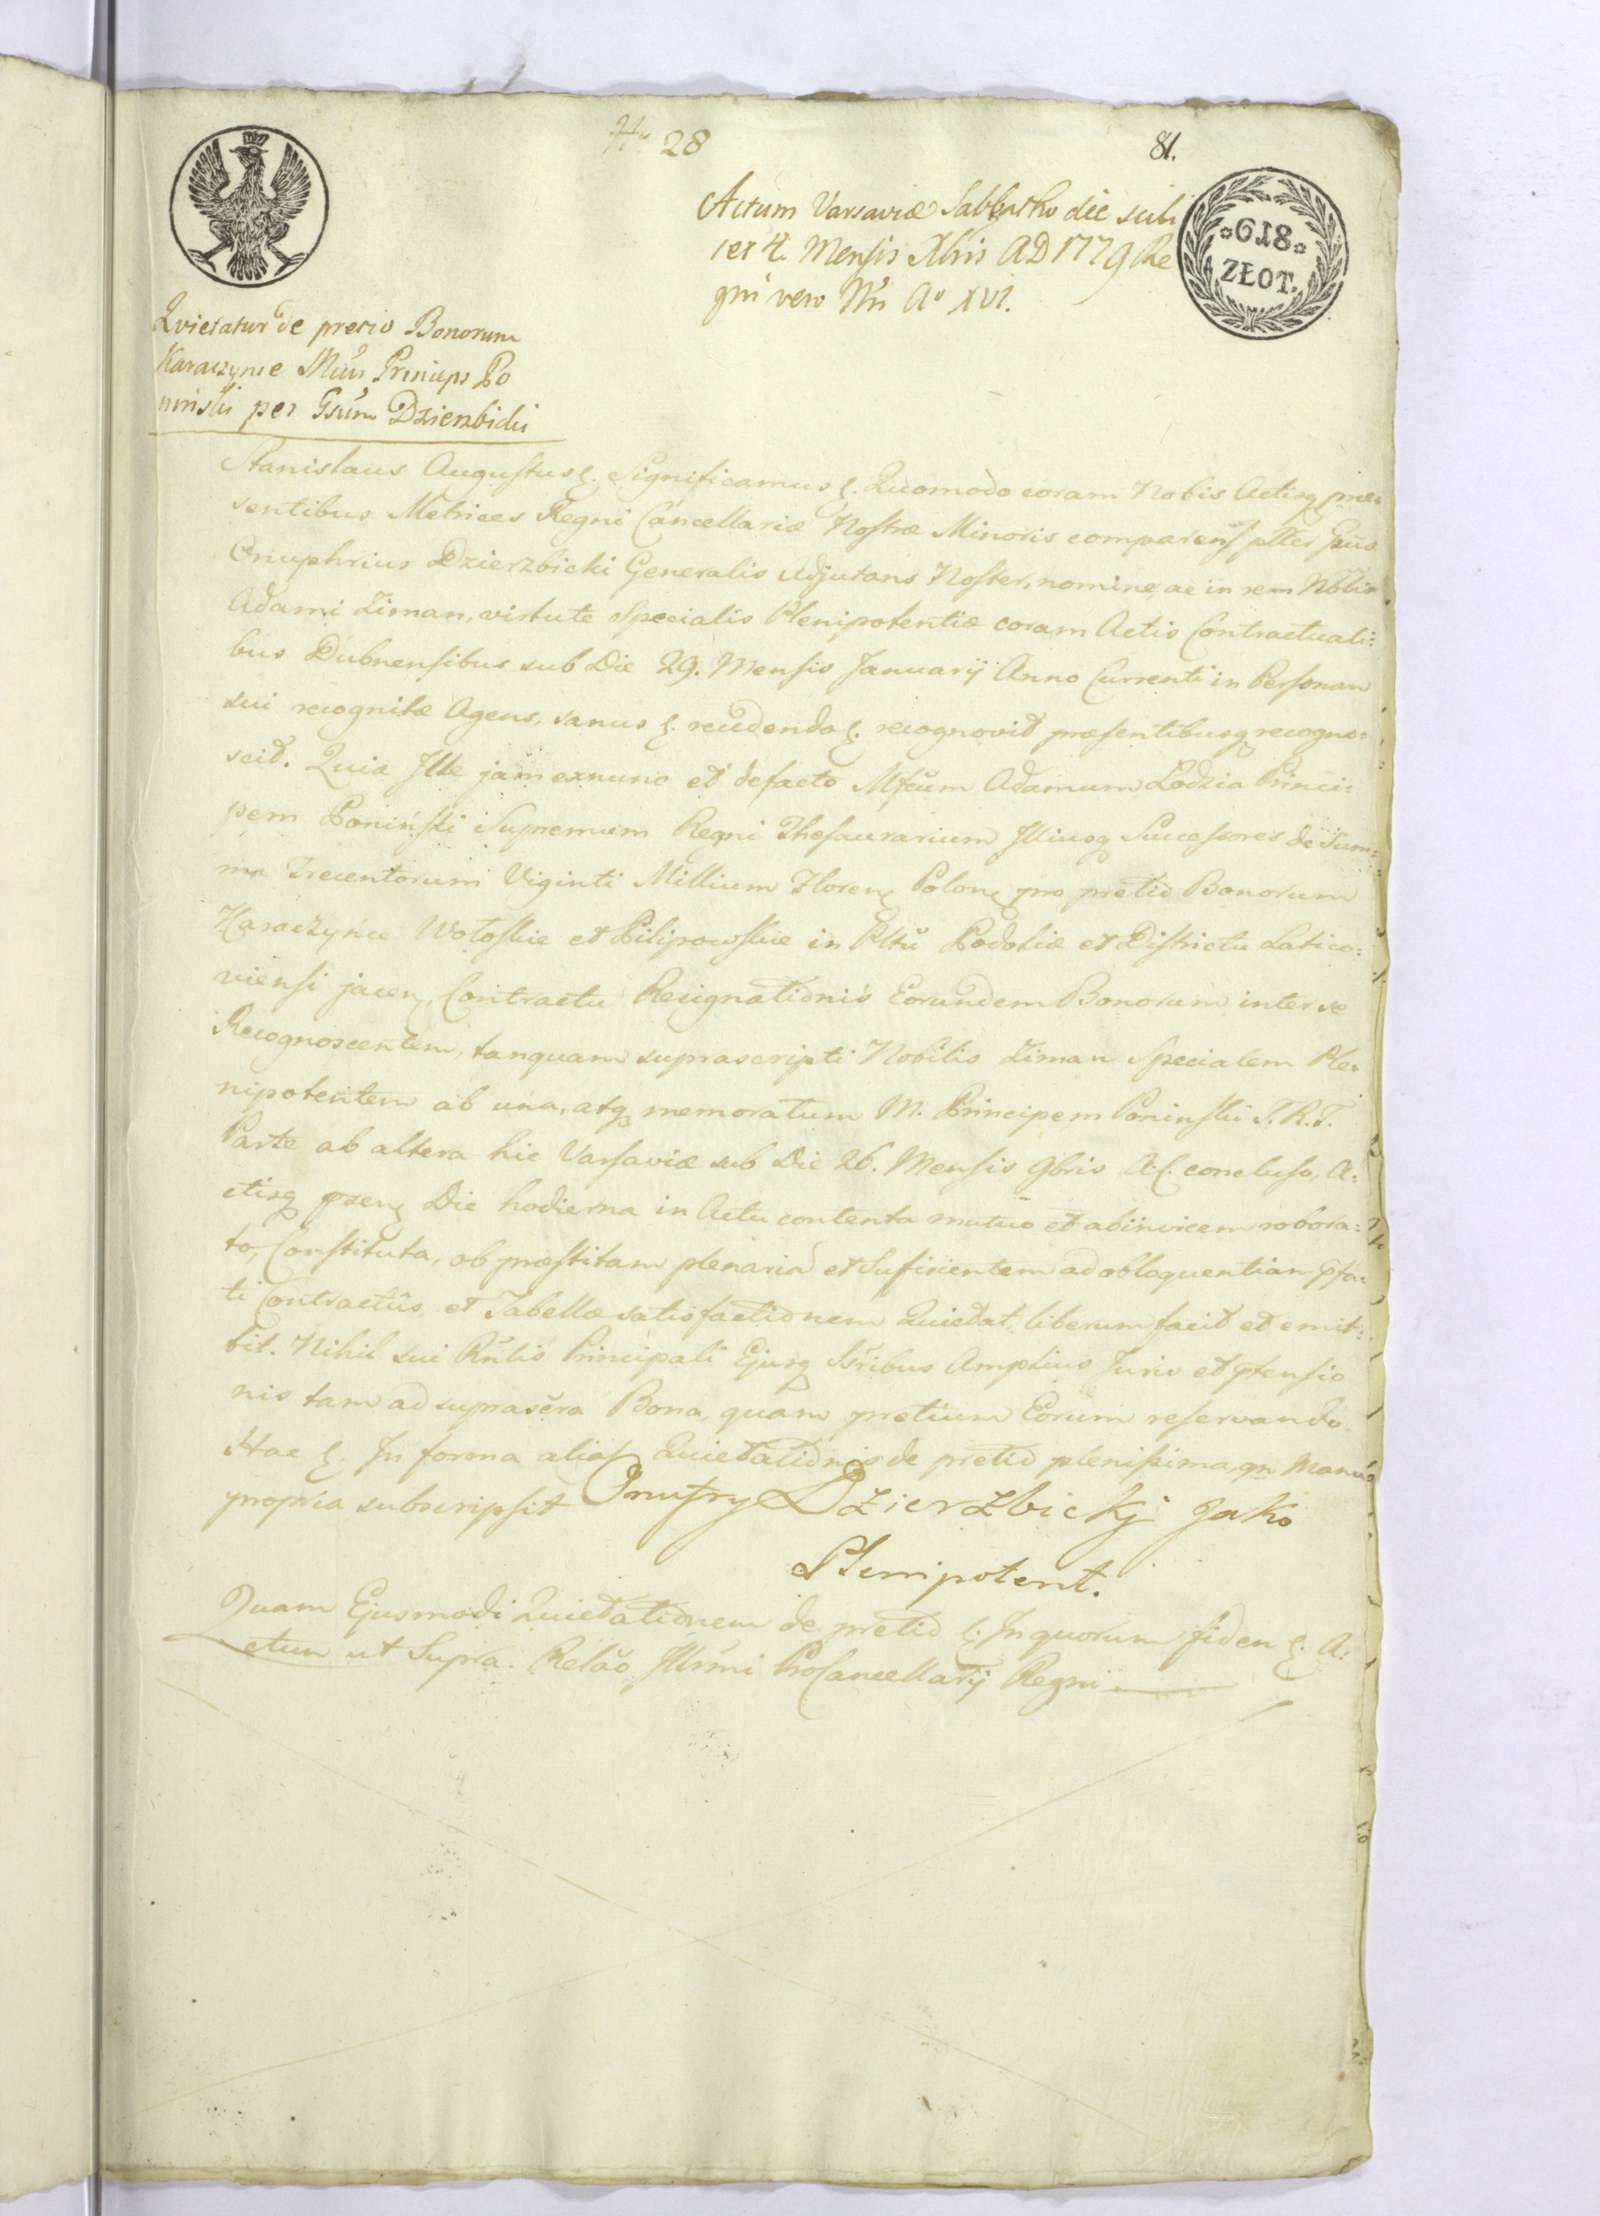 No 28
81.
Actum Varsaviæ Sabbatho die scili
cet 4. Mensis Xbris AD 1779 Re
gni vero Nri Ao XVI.
618
ZŁOT.
Quietatur de precio Bonorum
Karaczynce Princeps Po
ninski per Gsum Dzierzbicki
Stanislaus Augustus &. Significamus &. Quomodo coram Nobis Actisq præ=
sentibus Metrices Regni Cancellariæ Nostræ Minoris comparens pltēr Gsus
Onuphrius Dzierzbicki Generalis Adjutans Noster, nomine ac in rem Nblis
Adami Ziman, virtute Specialis Plenipotentiæ coram Actis Contractuali=
bus Dubnensibus sub Die 29. Mensis Januarij Anno Currenti in Personam
sui recognitæ Agens, sanus &. recedendo &. recognovit præsentibusq recogno=
scit. Quia Ille jam exnunc et defacto Mfcum Adamum Lodzia Princi=
pem Poniński Supremum Regni Thesaurarium Illiusq Successores de Sum=
ma Trecentorum Viginti Millium Floren Polon pro pretio Bonorum
Karaczyńce Wołoskie et Pilipowskie in Pltu Podoliæ et Districtu Latico=
viensi jacen, Contractu Resignationis Eorundem Bonorum inter se
Recognoscentem, tanquam suprascripti Nobilis Ziman Specialem Ple=
nipotentem ab una, atq memoratum M. Principem Poninski S.R.T.
Parte ab altera hic Varsaviæ sub Die 26. Mensis 9bris A.C. concluso, A=
ctisq psen Die hodierna in Actu contenta mutuo et abinvicem robora=
to, Constituta, ob præstitam plenaria et Suficientem ad obloquentiam pfa=
ti Contractûs, et Tabellæ satisfactionem Quietat, liberum facit et emit=
tit. Nihil sui Rntis Principali Ejusq Ssribus Amplius Juris et ptensio
nis tam ad suprascra Bona, quam pretium Eorum reservando.
Hac &. In forma alias Quietationis de pretio plenissima, qn Manu
propria subscripsit Onufry Dzierzbicki jako
Plenipotent.
Quam Ejusmodi Quietationem de pretio &. In quorum fidem &. A=
ctum ut Supra. Relao Illrmi ProCancellarij Regni